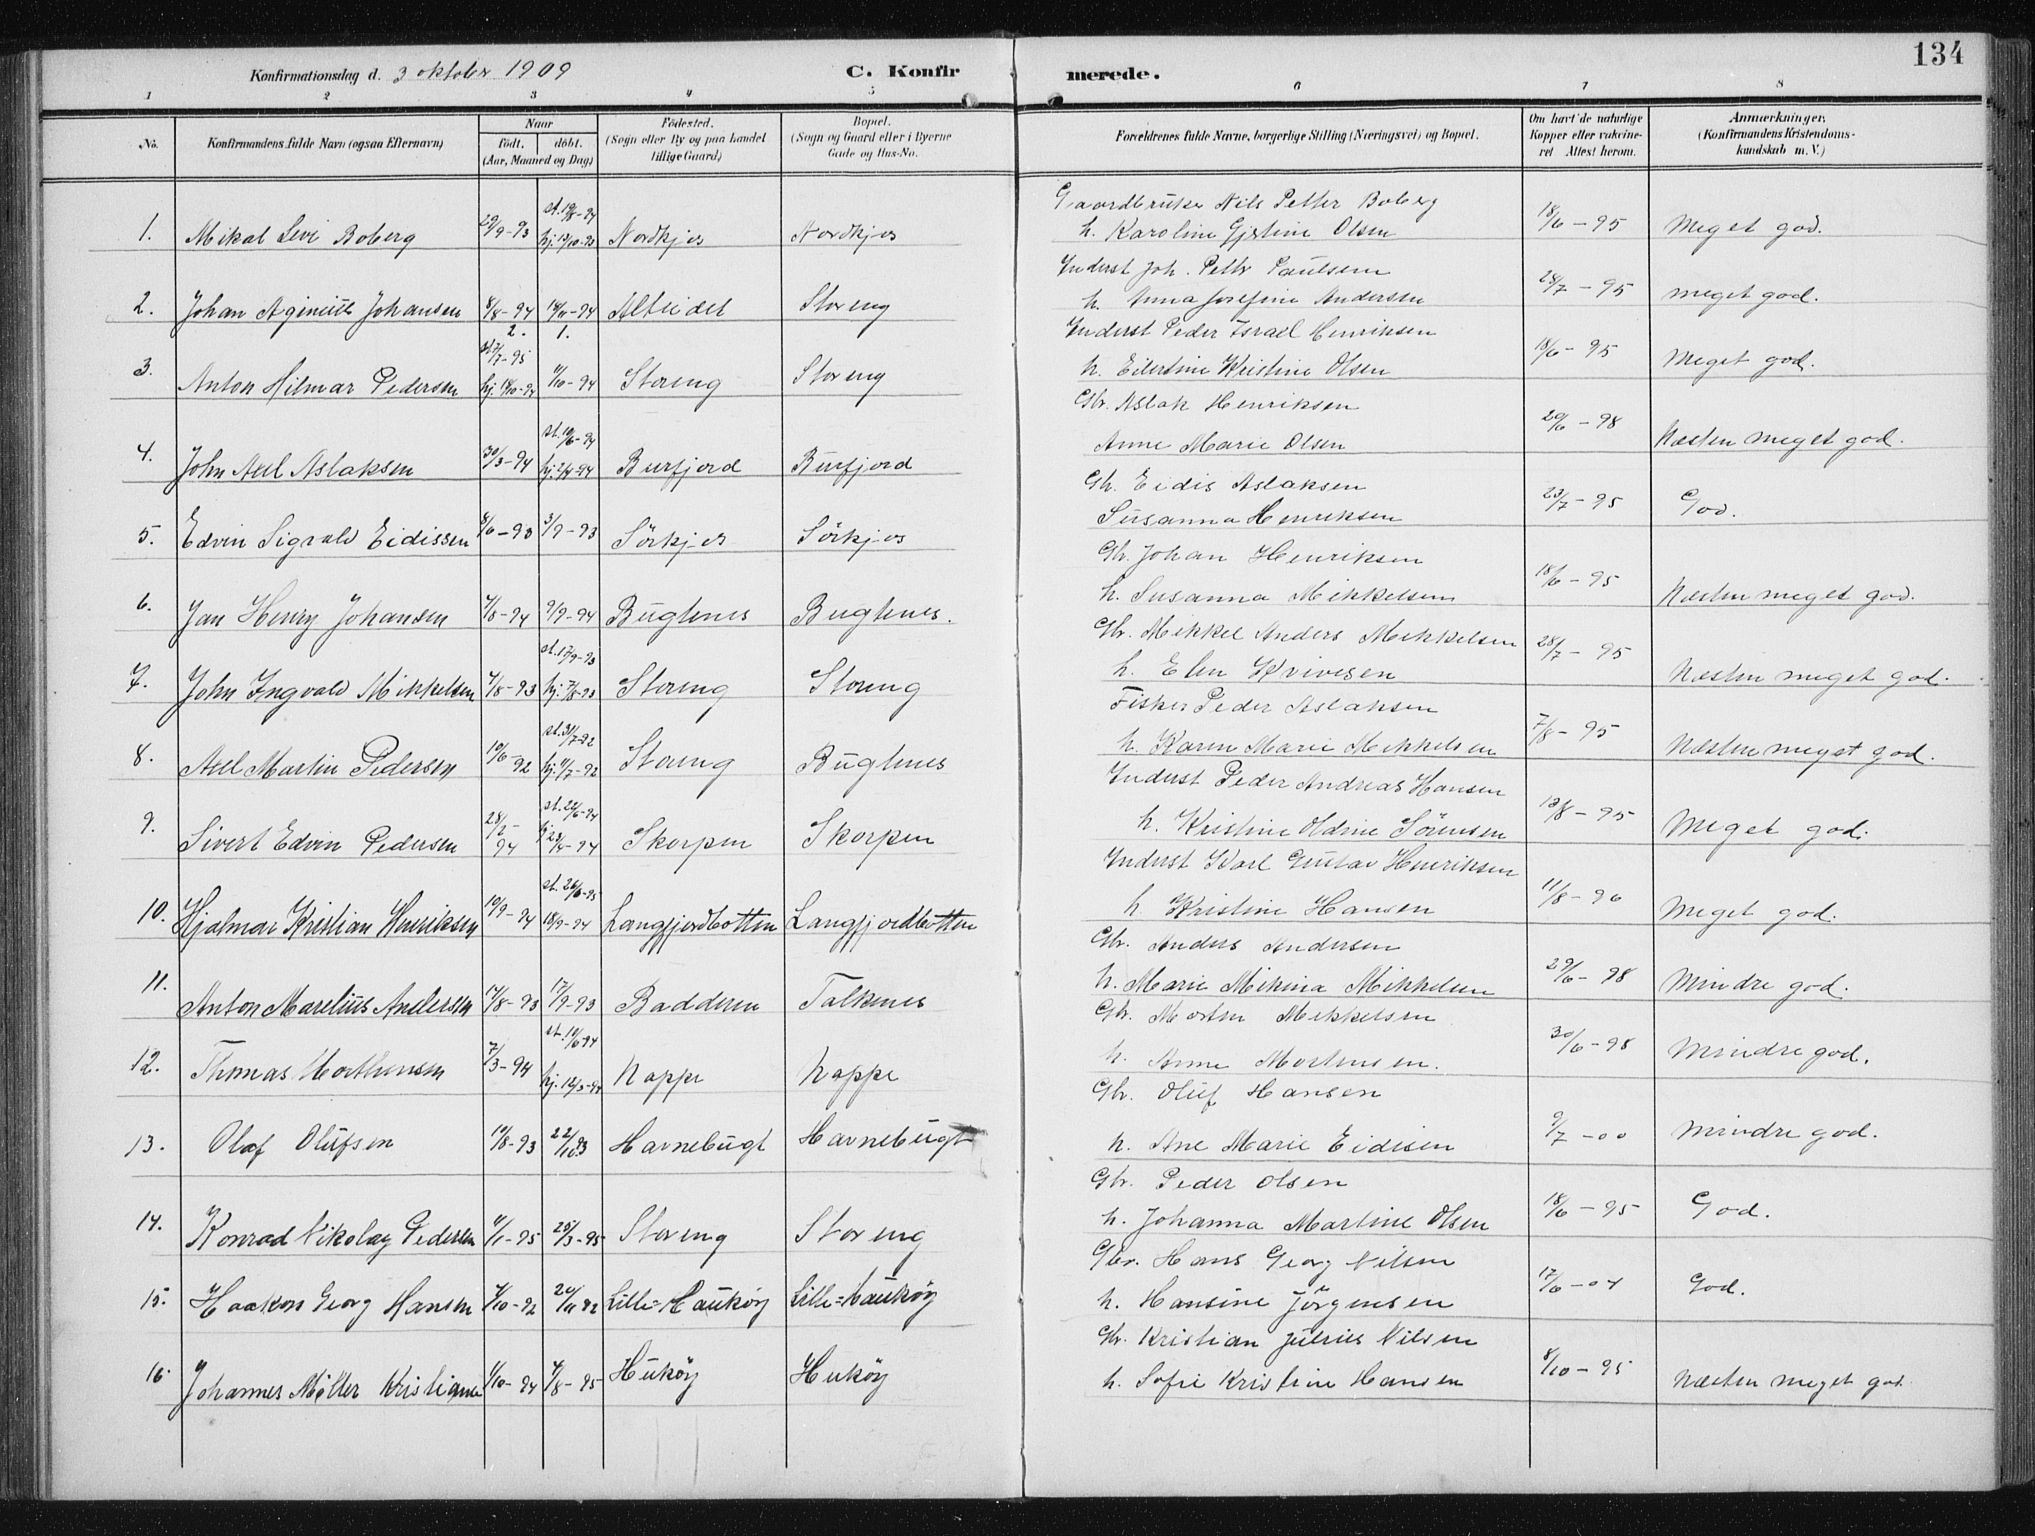 134
Konfirmationsdag d. 3 oktober 1909 C. Konfir merede.
1 2 3 4 5 6 7 8
No. Konfirmandens fulde Navn (ogsaa Efternavn) Naar født. døbt. (Aar, Maaned og Dag) Fødested. (Sogn eller By og paa Landet tillige Gaard) Bopæl. (Sogn og Gaard eller i Byerne Gade og Hus-No. Forældrenes fulde Navne, borgerlige Stilling (Næringsvei) og Bopæl. Om havt de naturlige Kopper eller vakcineret Attest herom. Anmærkninger. (Konfirmandens Kristendomskundskab m. V.)
Gaardbruker Nils Petter Boberg
1. Mikal Levi Boberg 29/9-93 st. 19/8-94 hj. 13/10-93 Nordkjos Nordkjos h. Karoline Gjetine Olsen 18/6-95 Meget god.
Inderst Joh. Petter Paulsen
2. Johan Johansen 8/8-94 14/11-94 Alteidet Storeng h. Anna Josefine Andersen 28/7-95 meget god.
2. 1.
Inderst Peder Israel Henriksen
3. Anton Hilmar Pedersen st. 7/7-95 hj. 18/10-94 11/10-94 Storeng Storeng h. Eilertine Kristine Olsen 18/6-95 Meget god.
Gbr. Aslak Henriksen
4. John Axel Aslaksen 30/3-94 st. 10/6-94 hj. 2/4-94 Burfjord Burfjord Anne Marie Olsen 29/6-98 Næsten meget god.
Gbr. Eidis Aslaksen
5. Edvin Sigvald Eidissen 8/6-93 3/9-93 Sörkjos Sörkjos Susanna Henriksen 23/7-95 God.
Gbr. Johan Henriksen
6. Jan Henry Johansen 7/8-94 9/9-94 Bugtenes Bugtenes. h. Susanna Mikkelsen 18/6-95 Næsten meget god.
Gbr. Mikkel Anders Mikkelsen
7. John Ingvald Mikkelsen 4/8-93 st. 17/9-93 hj. 7/8-93 Storeng Storeng h. Elen Kvivesen 28/7-95 Næsten meget god.
Fisker Peder Aslaksen
8. Axel Martin Pedersen 10/6-92 st. 31/7-92 hj. 11/7-92 Storeng Bugtenes h. Karen Marie Mikkelsen 7/8-95 Næsten meget god.
Inderst Peder Andreas Hansen
9. Sivert Edvin Pedersen 28/2-94 st. 24/6-94 hj. 23/4-94 Skorpen Skorpen h. Kristine Oldine Sörensen 13/8-95 Meget god.
Inderst Karl Gustav Henriksen
10. Hjalmar Kristian Henriksen 10/9-94 st. 26/6-95 18/9-94 Langfjordbotten Langfjordbotten h. Kristine Hansen 11/8-96 Meget god.
Gbr. Anders Andersen
11. Anton Marelius Andersen 14/8-93 17/9-93 Badderen Talkenes h. Marie Mikkelsen 29/6-98 Mindre god.
Gbr. Morten Mikkelsen
12. Thomas Morthensen 7/3-94 st. 10/6-94 hj. 12/3-94 Noppe Noppe h. Anne Mortensen. 30/6-98 Mindre god.
Gbr. Oluf Hansen
13. Olaf Olufsen 11/8-93 22/10.93 Havnebugt Havnebugt h. Ane Marie Eidisen 9/7-00 Mindre god.
Gbr. Peder Olsen
14. Konrad Nikolay Pedersen 11/1-95 25/3-95 Storeng Storeng h. Johanna Martine Olsen 18/6-95 God.
Gbr. Hans Georg Nilsen
15. Haakon Georg Hansen 7/10-92 20/11 92 Lille=Haukøy Lille=Haukøy h. Hansine Jörgensen 17/6-04 God.
Gbr. Kristian Julius Nilsen
16 Johannes Møller Kristiansen 1/10-94 4/8-95 Hukøy Hukøy h. Sofie Kristine Hansen 8/10-95 Næsten meget god